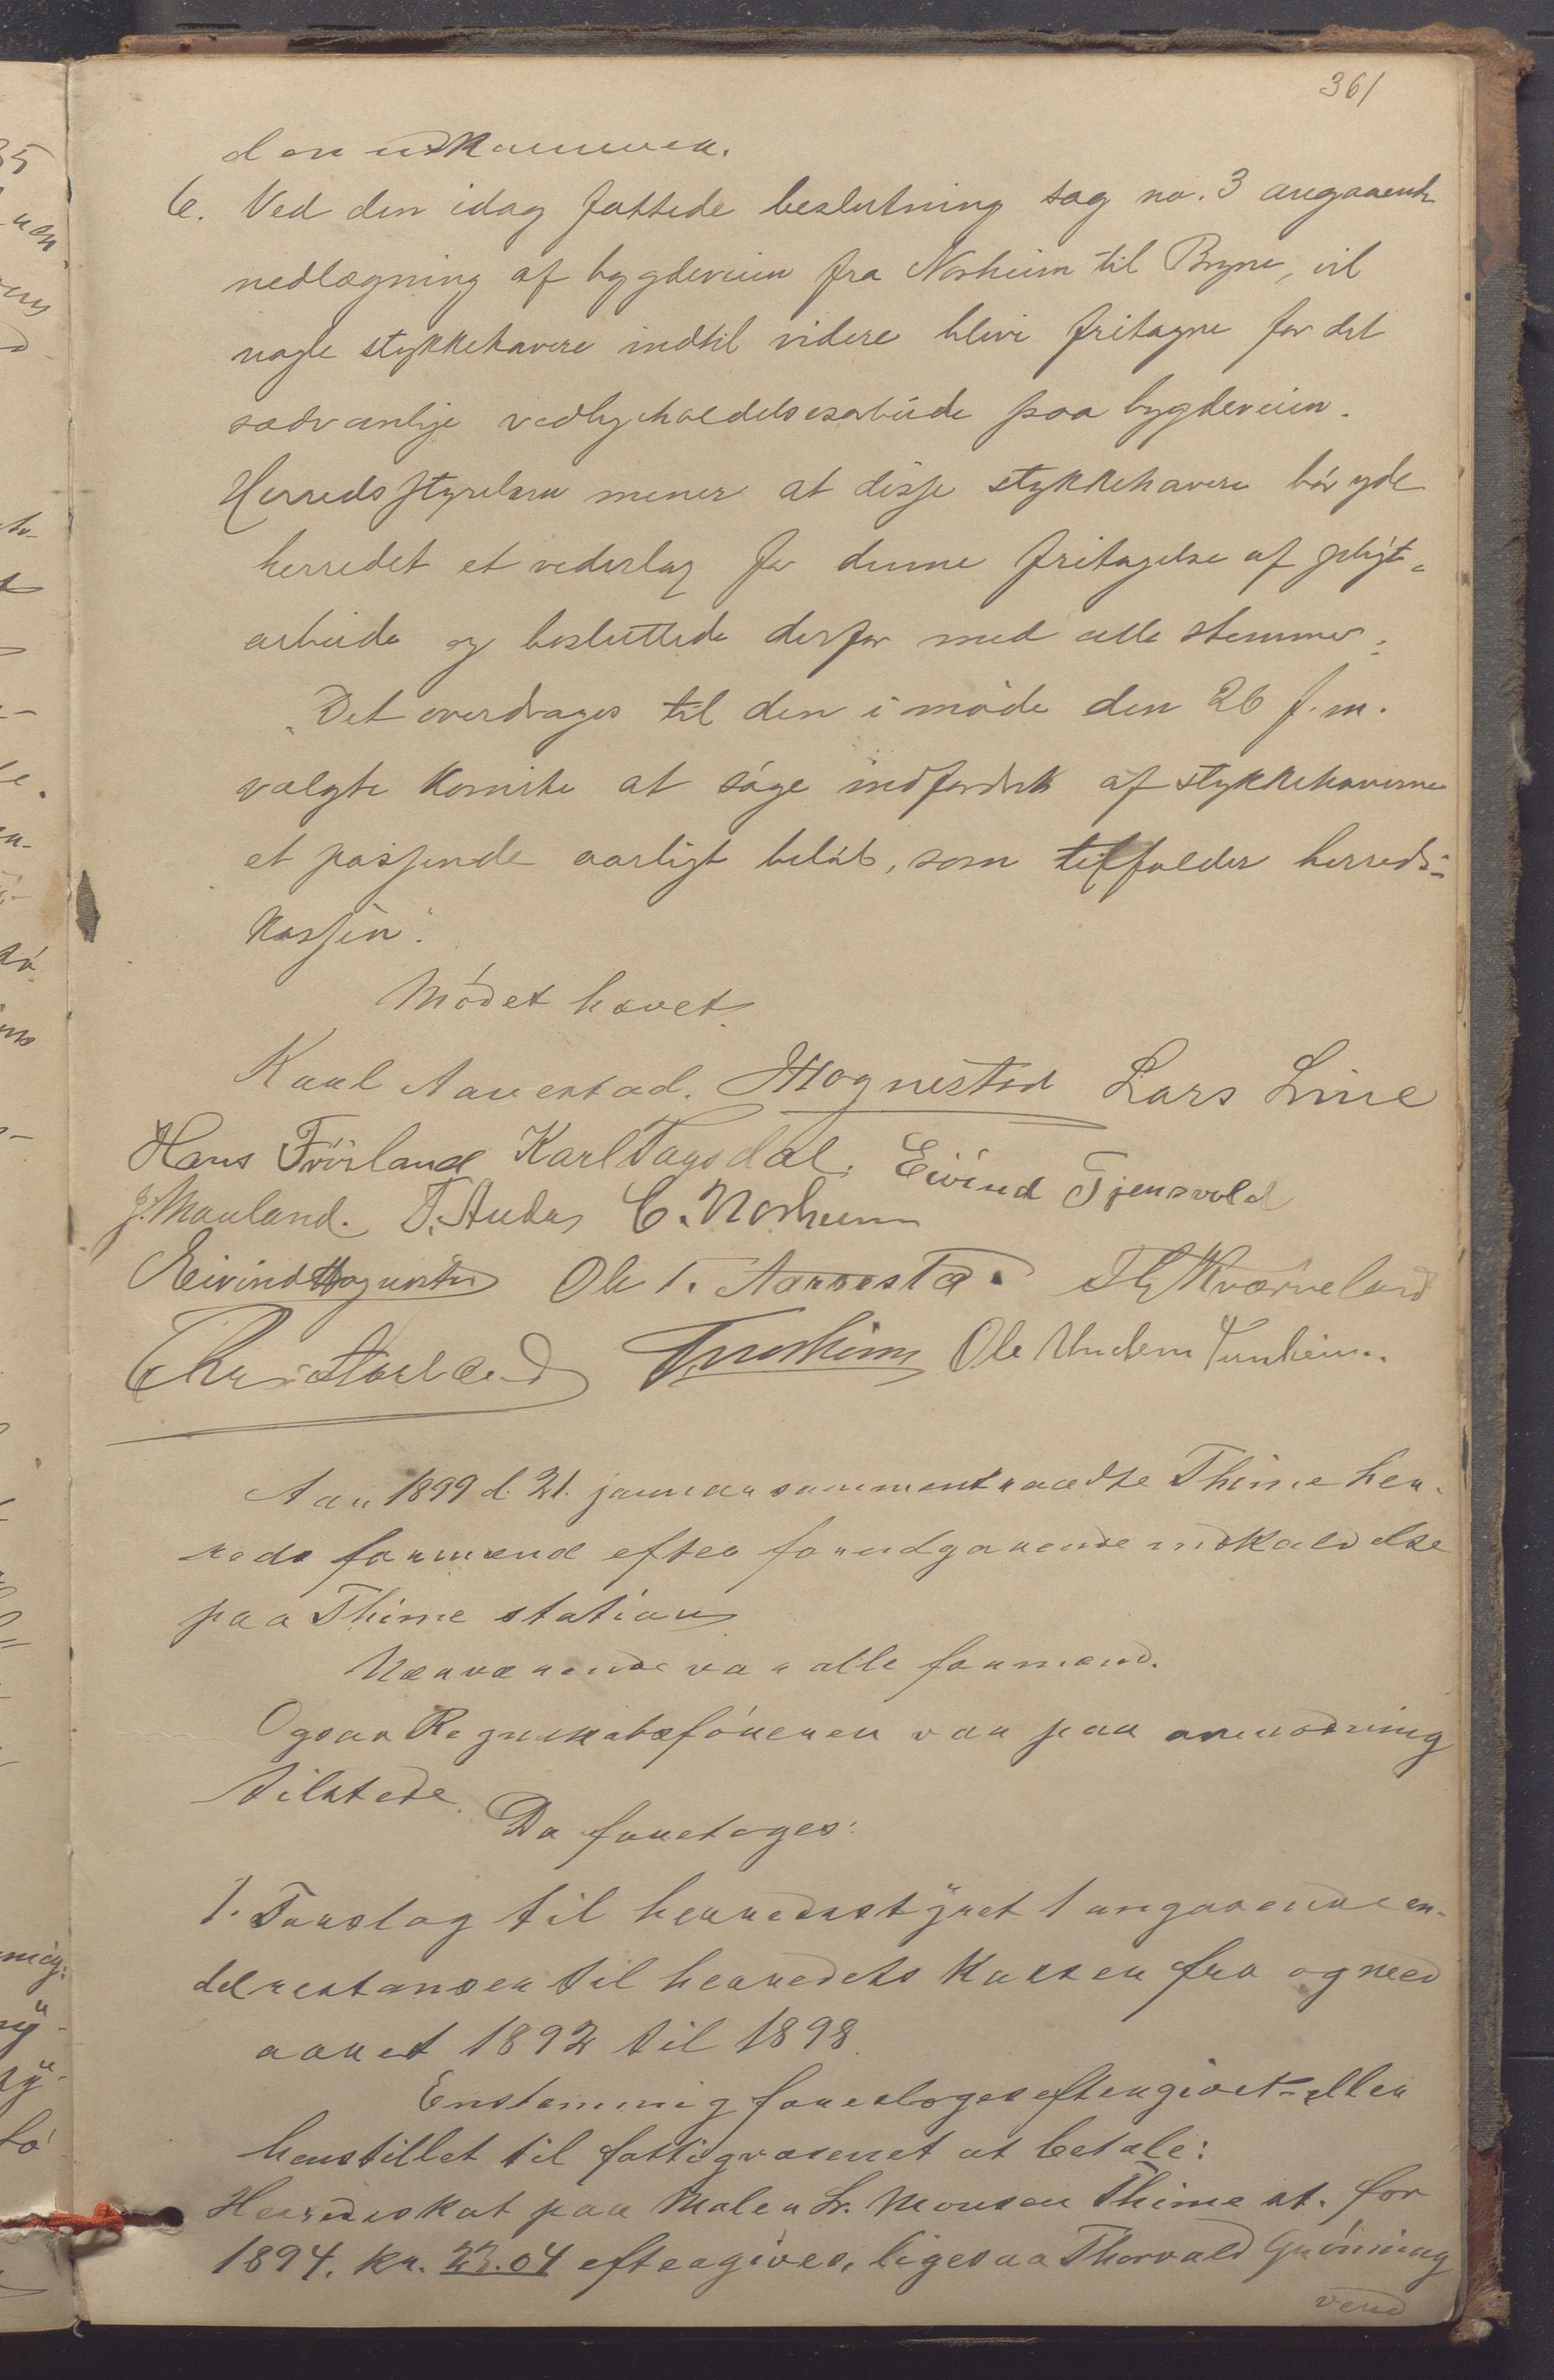 361
den udkommer.
6. Ved den idag fattede beslutning sag no. 3 angaaende
nedlægning af bygdeveien fra Norheim til Bryne, vil
nogle stykkehavere indtil videre blive fritagne for det
sædvanlige vedligeholdelsesarbeide paa bygdeveien.
Herredsstyrelsen mener at disse stykkehavere bör yde
herredet et vederlag for denne fritagelse af pligt-
arbeide og besluttede derfor med alle stemmer:
"Det overdrages til den i möde den 26 f.m.
valgte komite at söge indfordret af stykkehaverne
et passende aarligt belöb, som tilfalder herreds-
kassen".
Mödet hævet.
Karl Aarrestad. Mognestad Lars Line
Hans Fröiland Karl Fagsdal. Eivind Tjensvold
J. Mauland. T. Undem C. Norheim
Eivind Hognestad Ole T. Aarrestad. Kværneland
Norheim Ole Undem Tunheim.
Aar 1899 d. 21. januar sammentraadte Thime her-
reds formænd efter forudgaaende indkaldelse
paa Thime station
Nærværende var alle formænd.
Ogsaa Regnskabsföreren var paa anmodning
tilstede.
Da foretoges:
1. Forslag til herredsstyret angaaende en-
del restanser til herredets kasser fra og med
aaret 1892 til 1898.
Enstemmig foresloges eftergivet eller
henstillet til fattigvæsenet at betale:
Herredsskat paa Maler L. Monsen Thime st. for
1894. kr. 23.04 eftergives, ligesaa Thorvald Grönning
vend